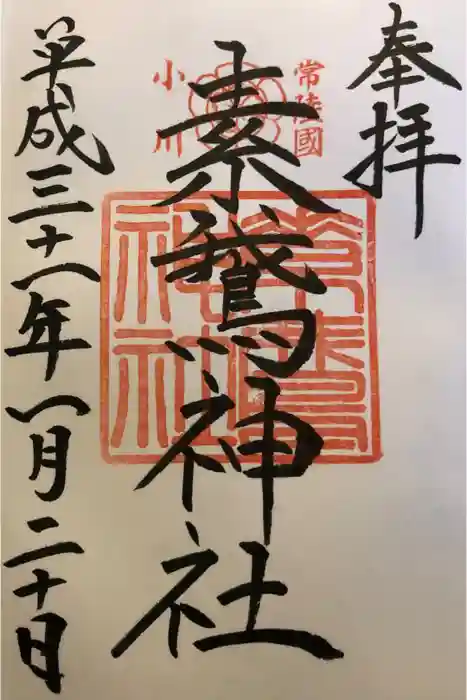 奉拝
常陸國
小川
素鵞神社
素鵞神社
平成三十一年一月二十日